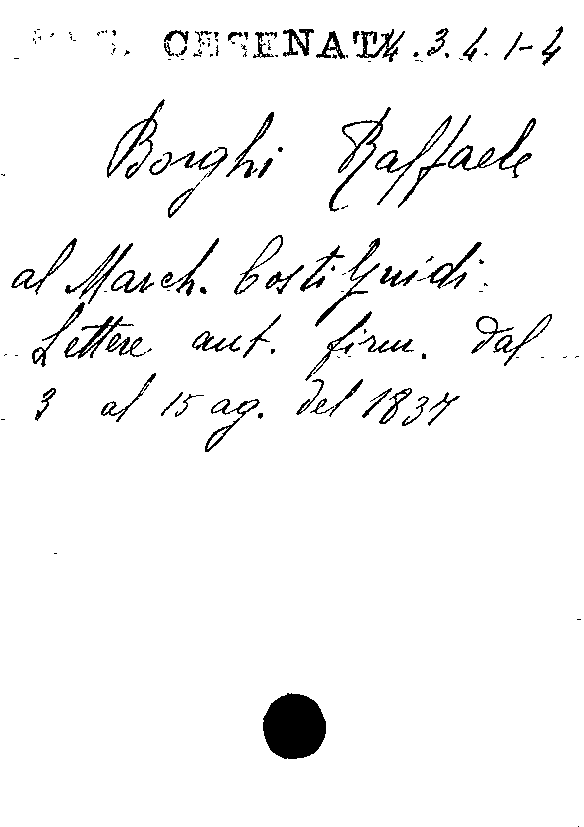 MSS. CESENATI 4.3.4.1-4
Borghi Raffaele
al March. Costi Guidi.
Lettere aut. firm. dal
3 al 15 ag. del 1837